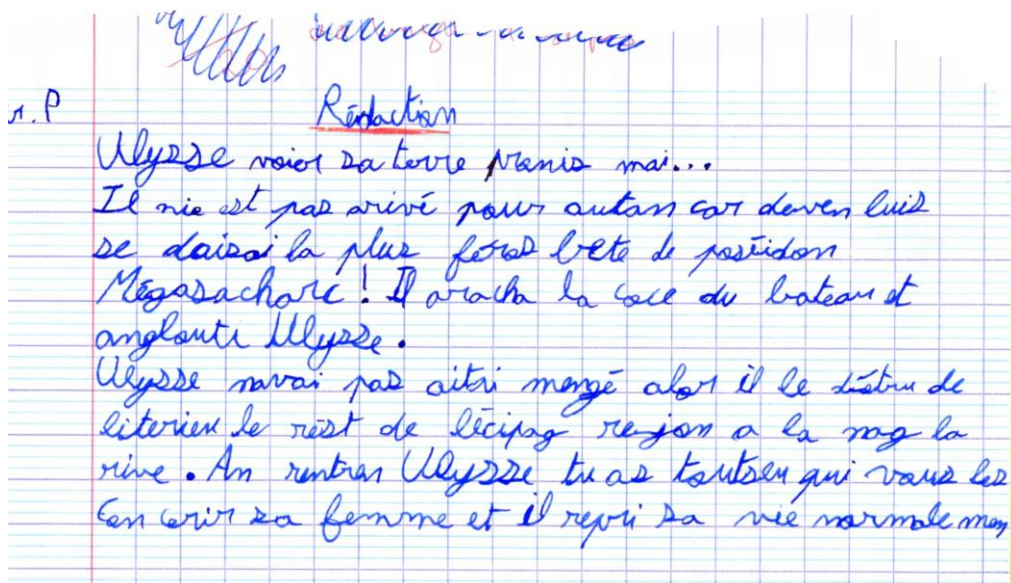 r. P
Rédaction
Ulysse voier sa terre promis mai...
Il nie est pas arivé pour autan car deven luis
se daisai la plus féros bete de poséidon
Mégasacharc ! Il aracha la coce du bateau et
anglouti Ulysse.
Ulysse navai pas aitai mengé alor il le déetru de
literieu le rést de lécipag rejon a la nag la
rive. An rentran Ulysse tu as toutseu qui vous les
con cerir sa femme et il repri sa vie normalemen